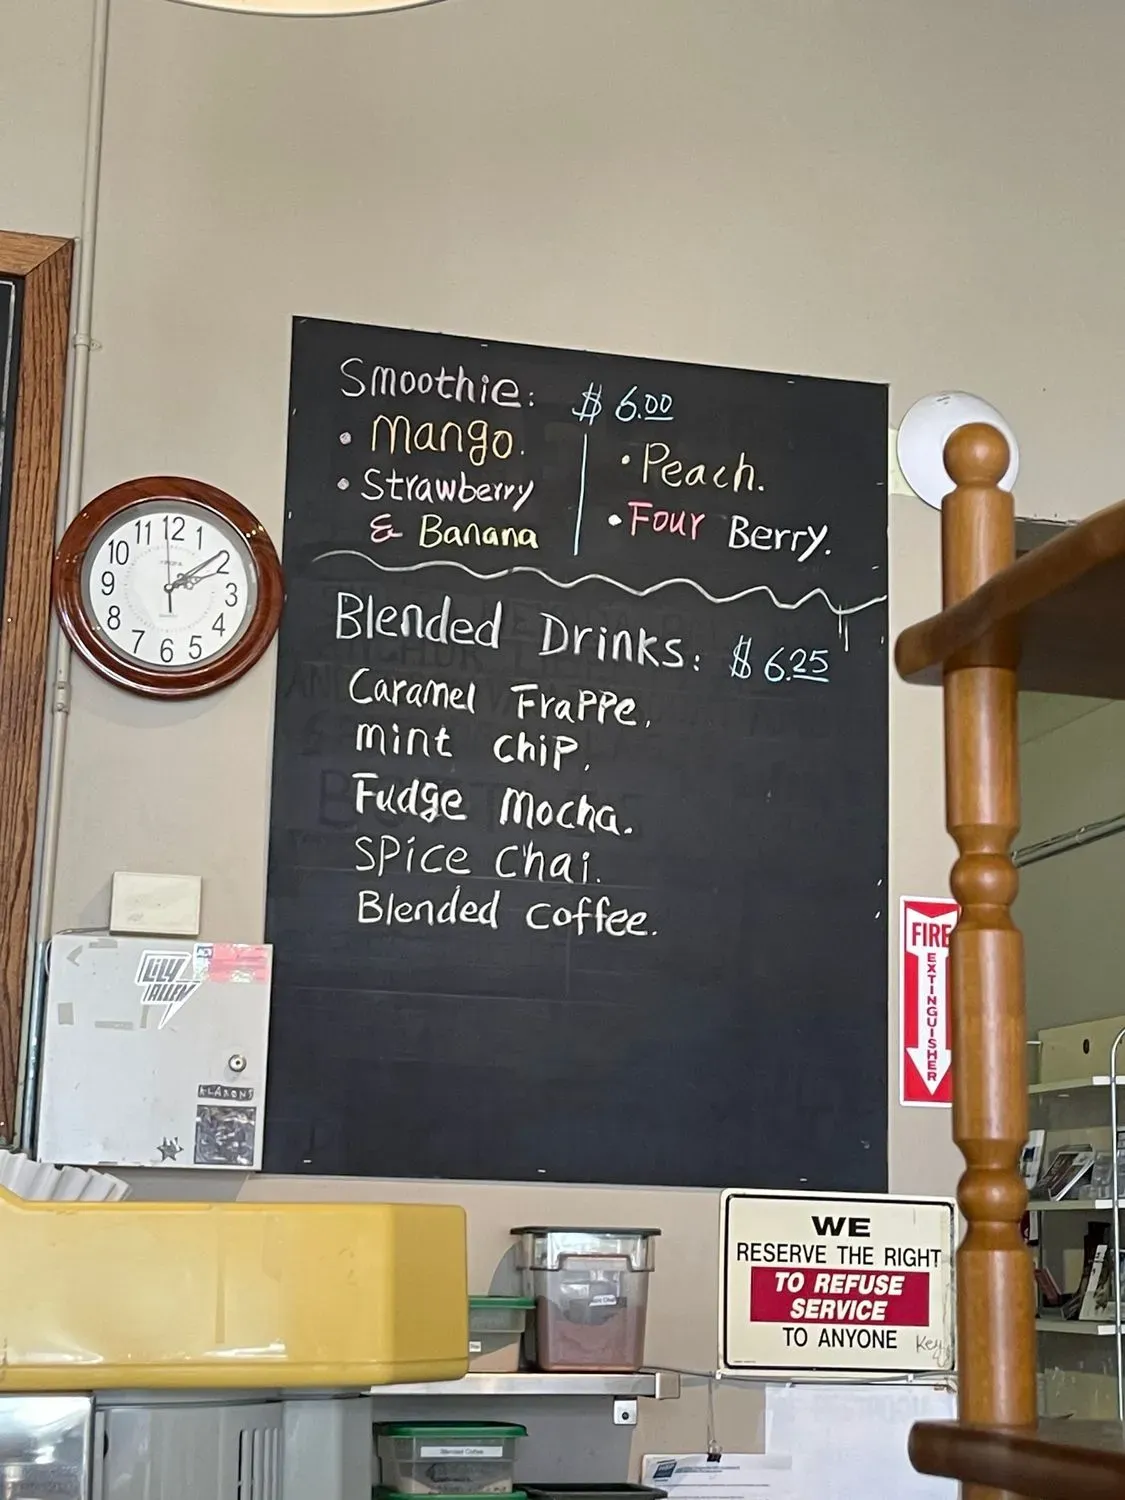 Smoothie: $ 6.00
• Mango.
• Strawberry
& Banana
• Peach.
• Four Berry.
Blended Drinks: $ 6.25
Caramel Frappe.
mint chip.
Fudge Mocha.
Spice Chai.
Blended coffee.
12
1
2
3
4
5
6
7
8
9
10
11
LILY
ALLEN
KLAXONS
FIRE
EXTINGUISHER
WE
RESERVE THE RIGHT
TO REFUSE
SERVICE
TO ANYONE
Key
Blended Coffee